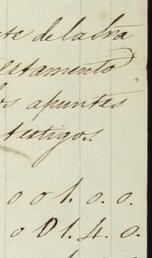 te de la Sra
estamento
los apuntes
testigos.
0 0 1. 0. 0.
0 0 1. 4. 0.